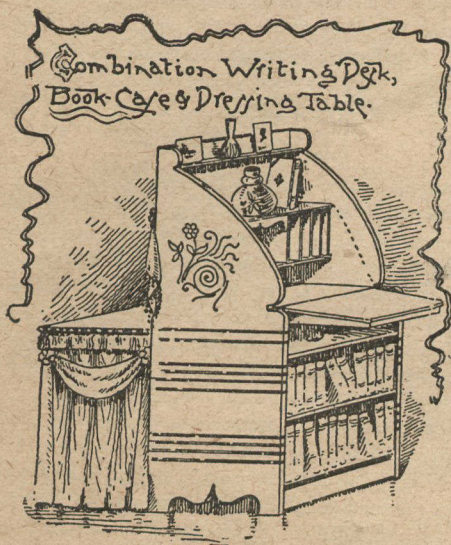 Combination Writing Desk,
Book-Case & Dressing Table.